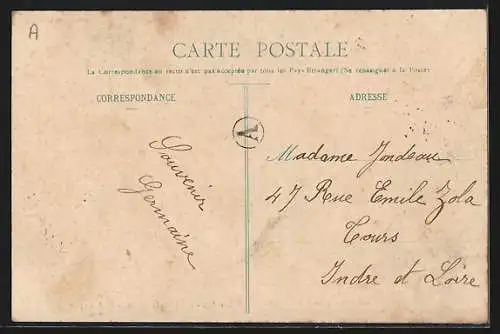 A
CARTE POSTALE
La Correspondance au recto n'est pas acceptée par tous les Pays Étrangers (Se renseigner à la Poste)
CORRESPONDANCE
ADRESSE
A
Souvenir
Germaine
Madame Jondeau
47 Rue Emile Zola
Tours
Indre et Loire